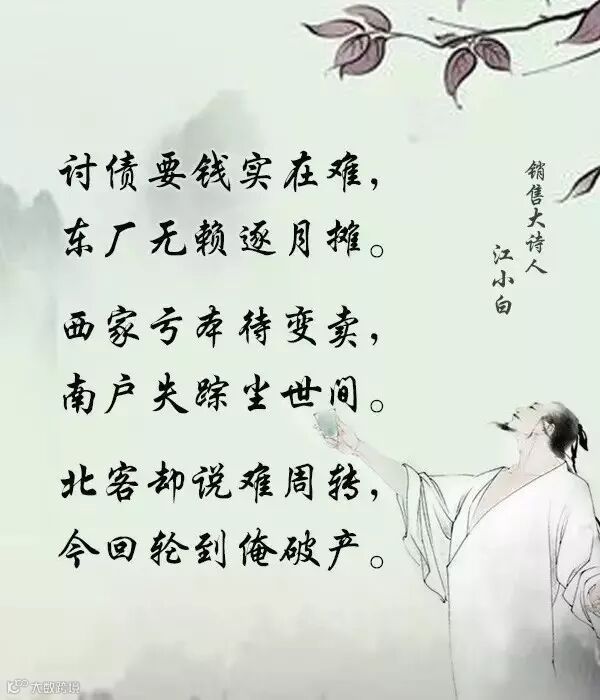 讨债要钱实在难，
东厂无赖逐月摊。
西家亏本待变卖，
南户失踪尘世间。
北客却说难周转，
今回轮到俺破产。
销售大诗人
江小白
大数跨境